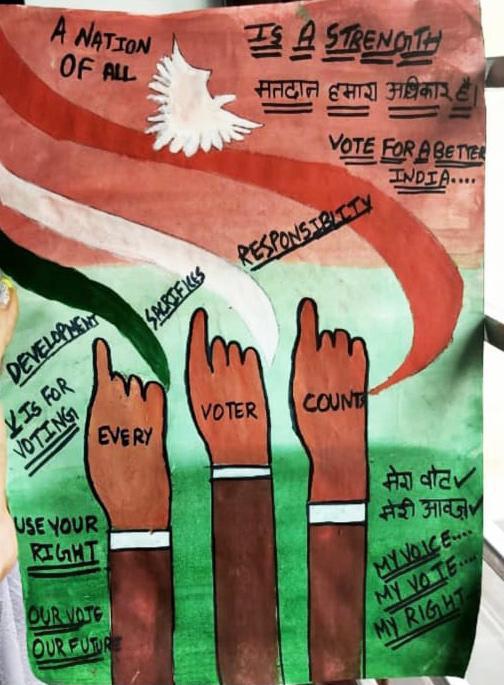 A NATION
OF ALL
IS A STRENGTH
मतदान हमारा अधिकार है।
VOTE FOR A BETTER
INDIA....
RESPONSIBLITY
SACRIFICES
DEVELOPMENT
V IS FOR
VOTING!
EVERY
VOTER
COUNTS
मेरा वोट ✓
मेरी आवाज ✓
USE YOUR
RIGHT
MY VOICE....
MY VOTE....
MY RIGHT..
OUR VOTE
OUR FUTURE